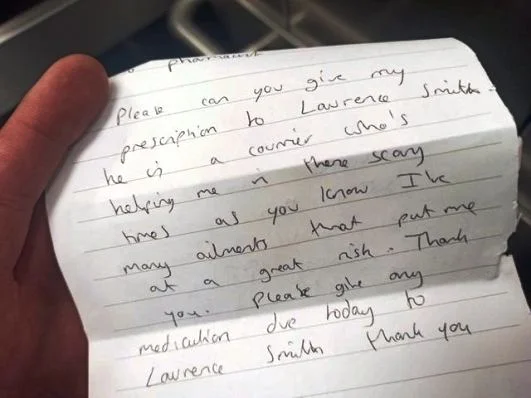 to pharmacist
Please can you give my
prescription to Lawrence Smith -
he is a courrier who's
helping me in there scary
times as you know I've
many ailments that put me
at a great risk. Thank
you. Please give any
medication due today to
Lawrence Smith thank you